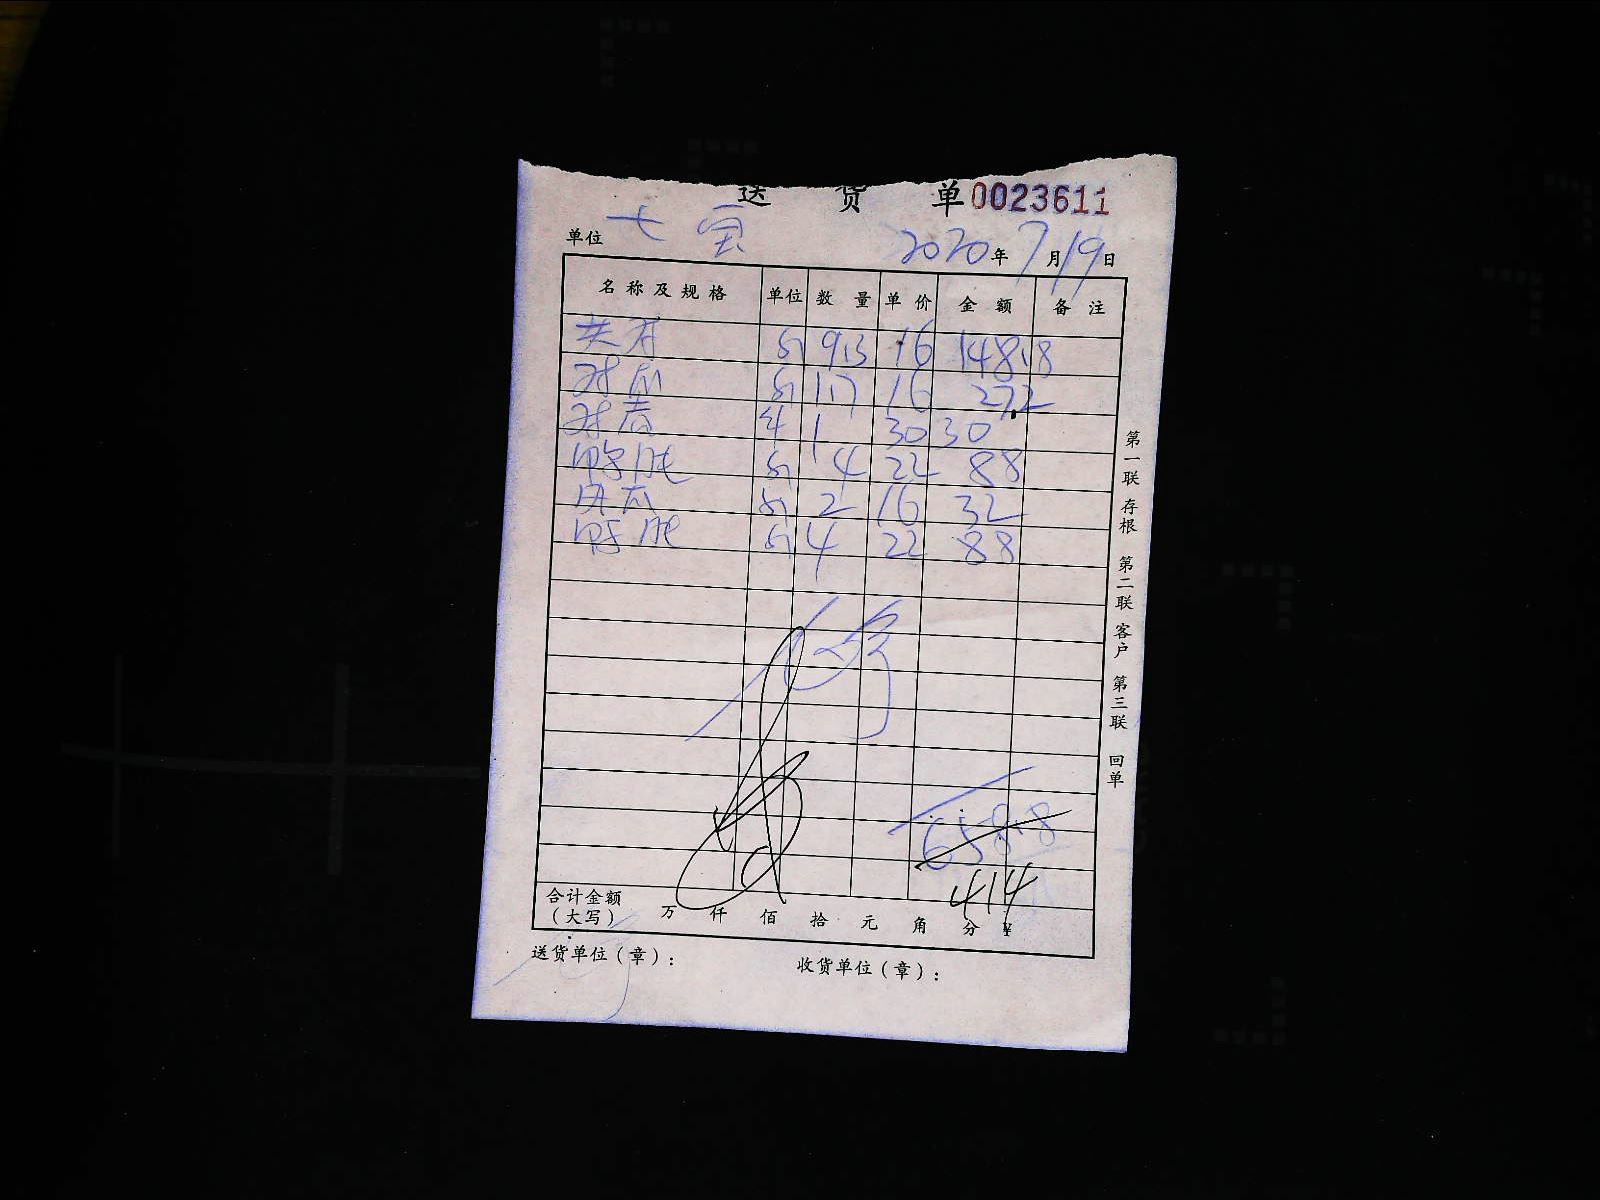 送 货 单 0023611
单位 七宝 2020年7月19日
名称及规格 单位 数量 单价 金额 备注
斤 9.3 16 148.8
斤 17 16 272
1 30 30
斤 4 22 88
斤 2 16 32
斤 4 22 88
658.8
414
合计金额
（大写） 万 仟 佰 拾 元 角 分 ¥
送货单位（章）： 收货单位（章）：
第一联 存根 第二联 客户 第三联 回单